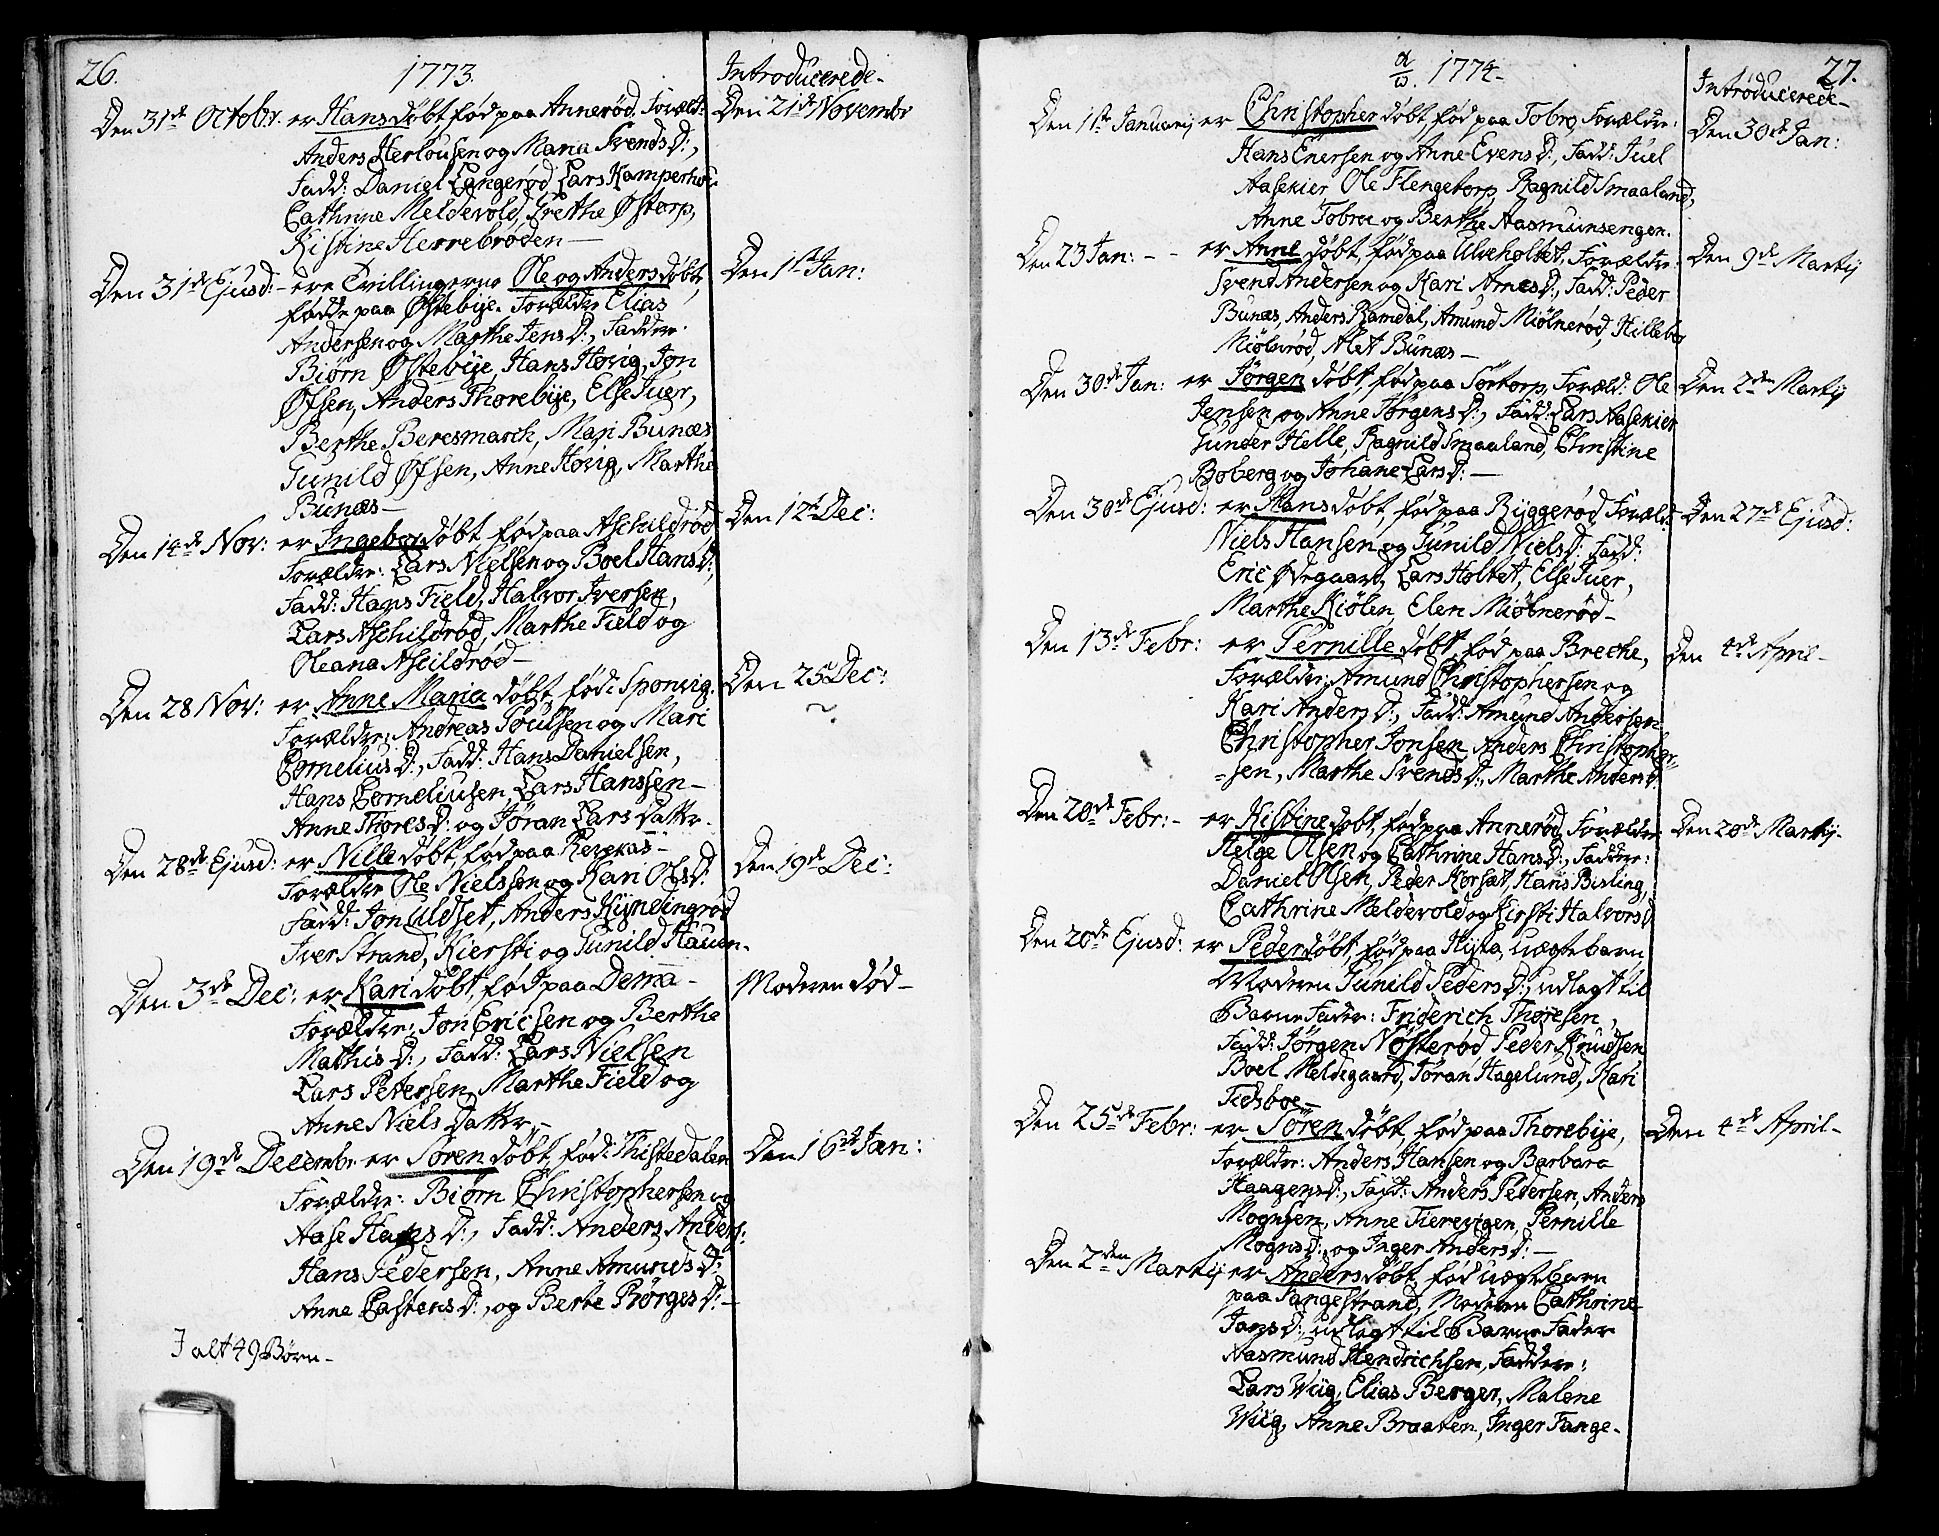 26. 1773. Introducerede-
Den 31te Octobr. er Hans døbt, fød paa Annerød. Foræld: Den 21de Novembr
Anders Herlousen og Maria Svends D:,
Fadd: Daniel Langerød, Lars Kamperhou
Cathrine Meldevold, Grethe Østorp,
Kistine Herrebrøden-
Den 31te Ejusd:- ere Tvillingerne Ole og Anders døbt, Den 1ste Jan:
fødde paa Østebije. Forældre Elias
Andersen og Marthe Jens D:, Faddere:
Biørn Østebije, Hans Høvig, Jon
Øfsen, Anders Thorebije, Else Juer,
Berthe Beresmarch, Mari Bunæs
Gunild Øfsen, Anne Høvig, Marthe
Bunæs-
Den 14de Nov: er Ingebor døbt fød paa Aschildrød Den 12te Dec:
Forældre: Lars Nielsen og Boel Hans D:,
Fadd: Hans Field, Halvor Iversen,
Lars Aschildrød, Marthe Field og
Oleana Ascildrød-
Den 28 Nov: er Anne Maria døbt, fød i Sponvig. Den 25 Dec:
Forældre: Andreas Poulsen og Mari
Cornelius D:, Fadd: Hans Danielsen,
Hans Corneliusen Lars Hanssen-
Anne Thores D: og Jøran Lars Dattr.
Den 28de Ejusd: er Nille døbt, fød paa Revekas- Den 19de Dec:
Forældre Ole Nielssen og Kari Ols D:
Fadd: Jon Uldset, Anders Kyndingrød
Iver Strand, Kiersti og Gunild Hauen-
Den 3de Dec: er Kari døbt, fød paa Dema- Moderen død-
Forældre: Jon Ericsen og Berthe
Mathis D:, Fadd: Lars Nielsen
Lars Petersen, Marthe Field og
Anne Niels Dattr,-
Den 19de Decembr er Søren døbt, fød i Thistedalen Den 16de Jan:
Forældre: Biørn Christophersen og
Aase Hans D:, Fadd: Anders Anders:
Hans Pedersen, Anne Amunds D:
Anne Castens D:, og Berte Børges D:-
I alt 49 Børn-
α/ω. 1774- 27.
Introducerede-
Den 1ste Januarij er Christopher døbt, fød paa Tobro, Forældre: Den 30te Jan:
Hans Enersen og Anne Evens D:, Fadd: Juel
Aasekier Ole Flengetorp, Ragnild Smaaland,
Anne Tobroe og Berthe Aasmunsengen.
Den 23 Jan: - - er Anne døbt, fød paa Ulveholtet, Forældre: Den 9de Martij
Svend Andersen og Kari Arnes D:, Fadd: Peder
Bunæs, Anders Ramdal, Amund Miølnerød, Hillebor
Miølnrød, Alet Bunæs-
Den 30de Jan: er Jørgen døbt, fød paa Sørtorp, Foræld: Ole Den 2den Martij
Jensen og Anne Jørgens D:, Fadd: Lars Aasekier
Gunder Helle, Ragnild Smaaland, Christine
Boberg og Johane Lars D:-
Den 30de Ejusd: er Hans døbt, fød paa Ryggerød Foræld: Den 27de Ejusd:
Niels Hansen og Gunild Niels D: Fadd:
Eric Ødegaard, Lars Holtet, Else Juer,
Marthe Kiølen, Elen Miølnerød-
Den 13de Febr: er Pernille døbt, fød paa Breche, Den 4de April-
Forældre: Amund Christophersen og
Kari Anders D:, Fadd: Amund Andersen
Christopher Jonsen Anders Christopher-
-sen, Marthe Svends D:, Marthe Anders D
Den 20de Febr:- er Kistine døbt, fød paa Annerød, Forældre: Den 20de Martij-
Helge Olsen og Cathrine Hans D:, Faddere:
Daniel Olsen, Peder Korsæt, Hans Bisling,
Cathrine Meldevold og Kirsti Halvors D
Den 20de Ejusd: er Peder døbt, fød paa Hysta, uægte barn
Moderen Gunild Peders D:, udlagt til
Barne Fader: Friderich Thoresen,
Fadd: Jørgen Nøsterød Peder Knudsen
Boel Meldegaard, Jøran Hagelund, Kari
Fidsboe-
Den 25de Febr: er Søren døbt, fød paa Thorebije, Den 4de April-
Forældre: Anders Hansen og Barbara
Haagens D:, Fadd: Anders Pedersen, Anders
Mognsen, Anne Tierevigen, Pernille
Mogns D:, og Inger Anders D:-
Den 2den Martij er Anders døbt, fød uægte barn
paa Tangestrand, Moderen Cathrine
Jans D:, udlagt til Barne Fader
Aasmund Hendrichsen, Faddere:
Lars Wiig, Elias Berger, Malene
Wiig, Anne Braaten, Inger Tange-